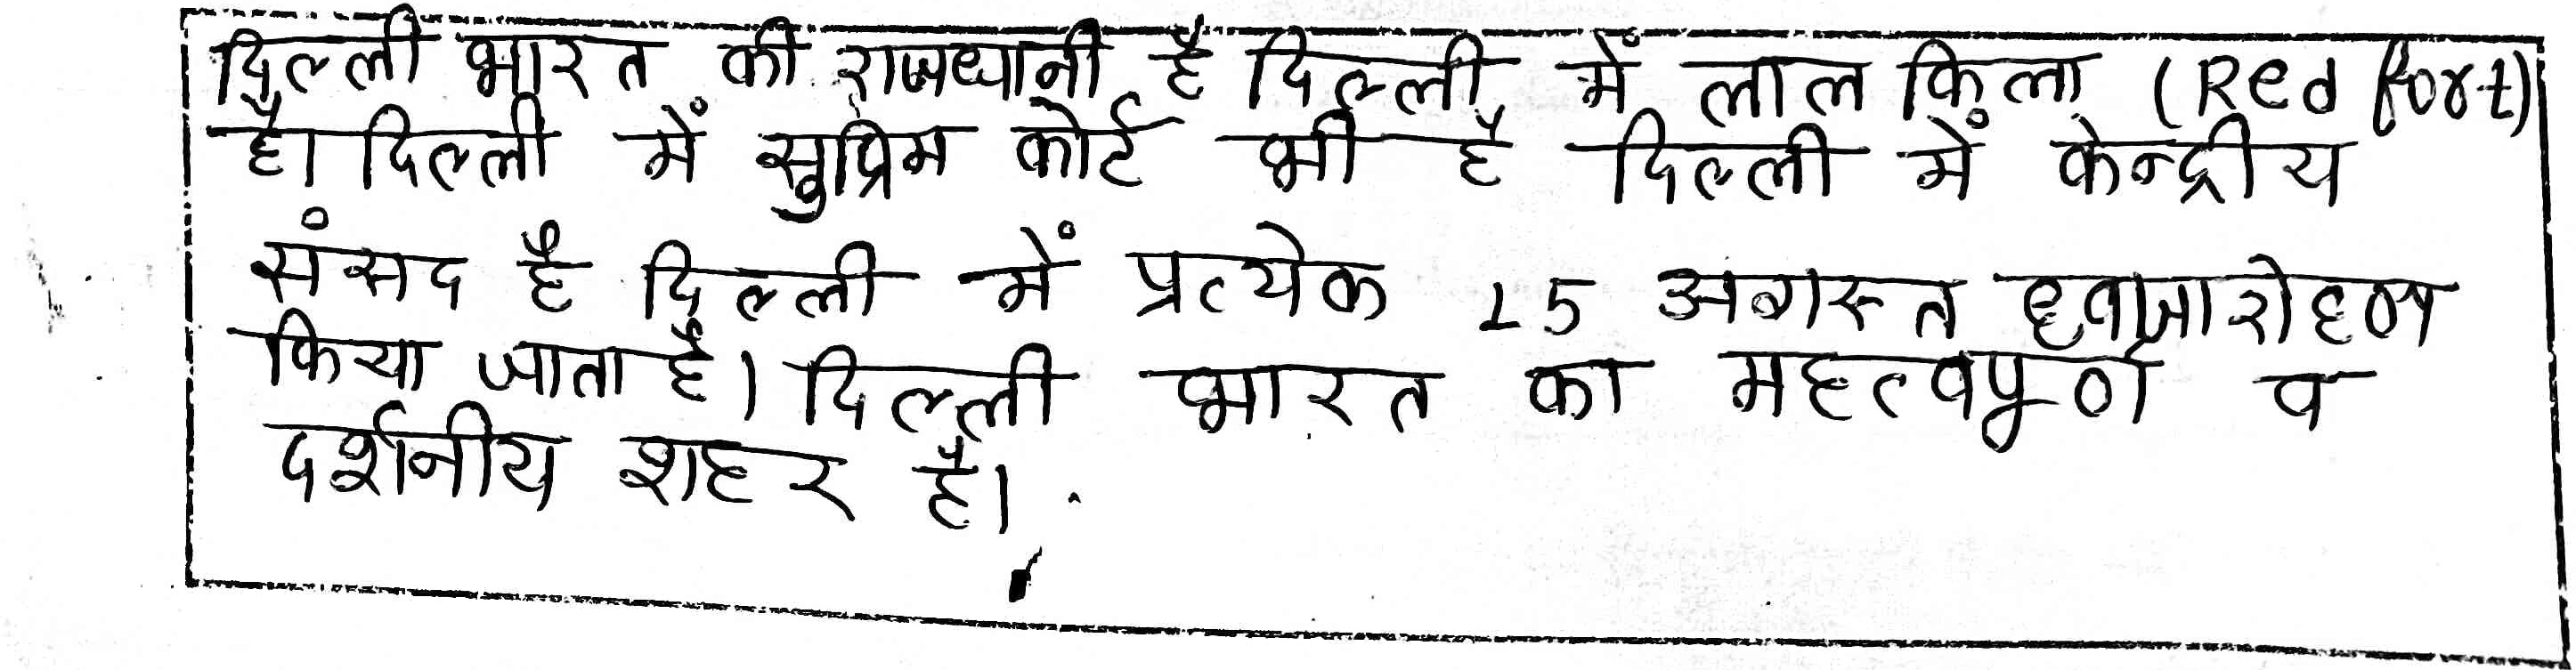 दिल्ली भारत की राजधानी है दिल्ली में लाल किला (Red fort)
है। दिल्ली में सुप्रिम कोर्ट भी है दिल्ली में केन्द्रीय
संसद है दिल्ली में प्रत्येक 15 अगस्त ध्वाजारोहण
किया जाता है। दिल्ली भारत का महत्वपूर्ण व
दर्शनीय शहर है।